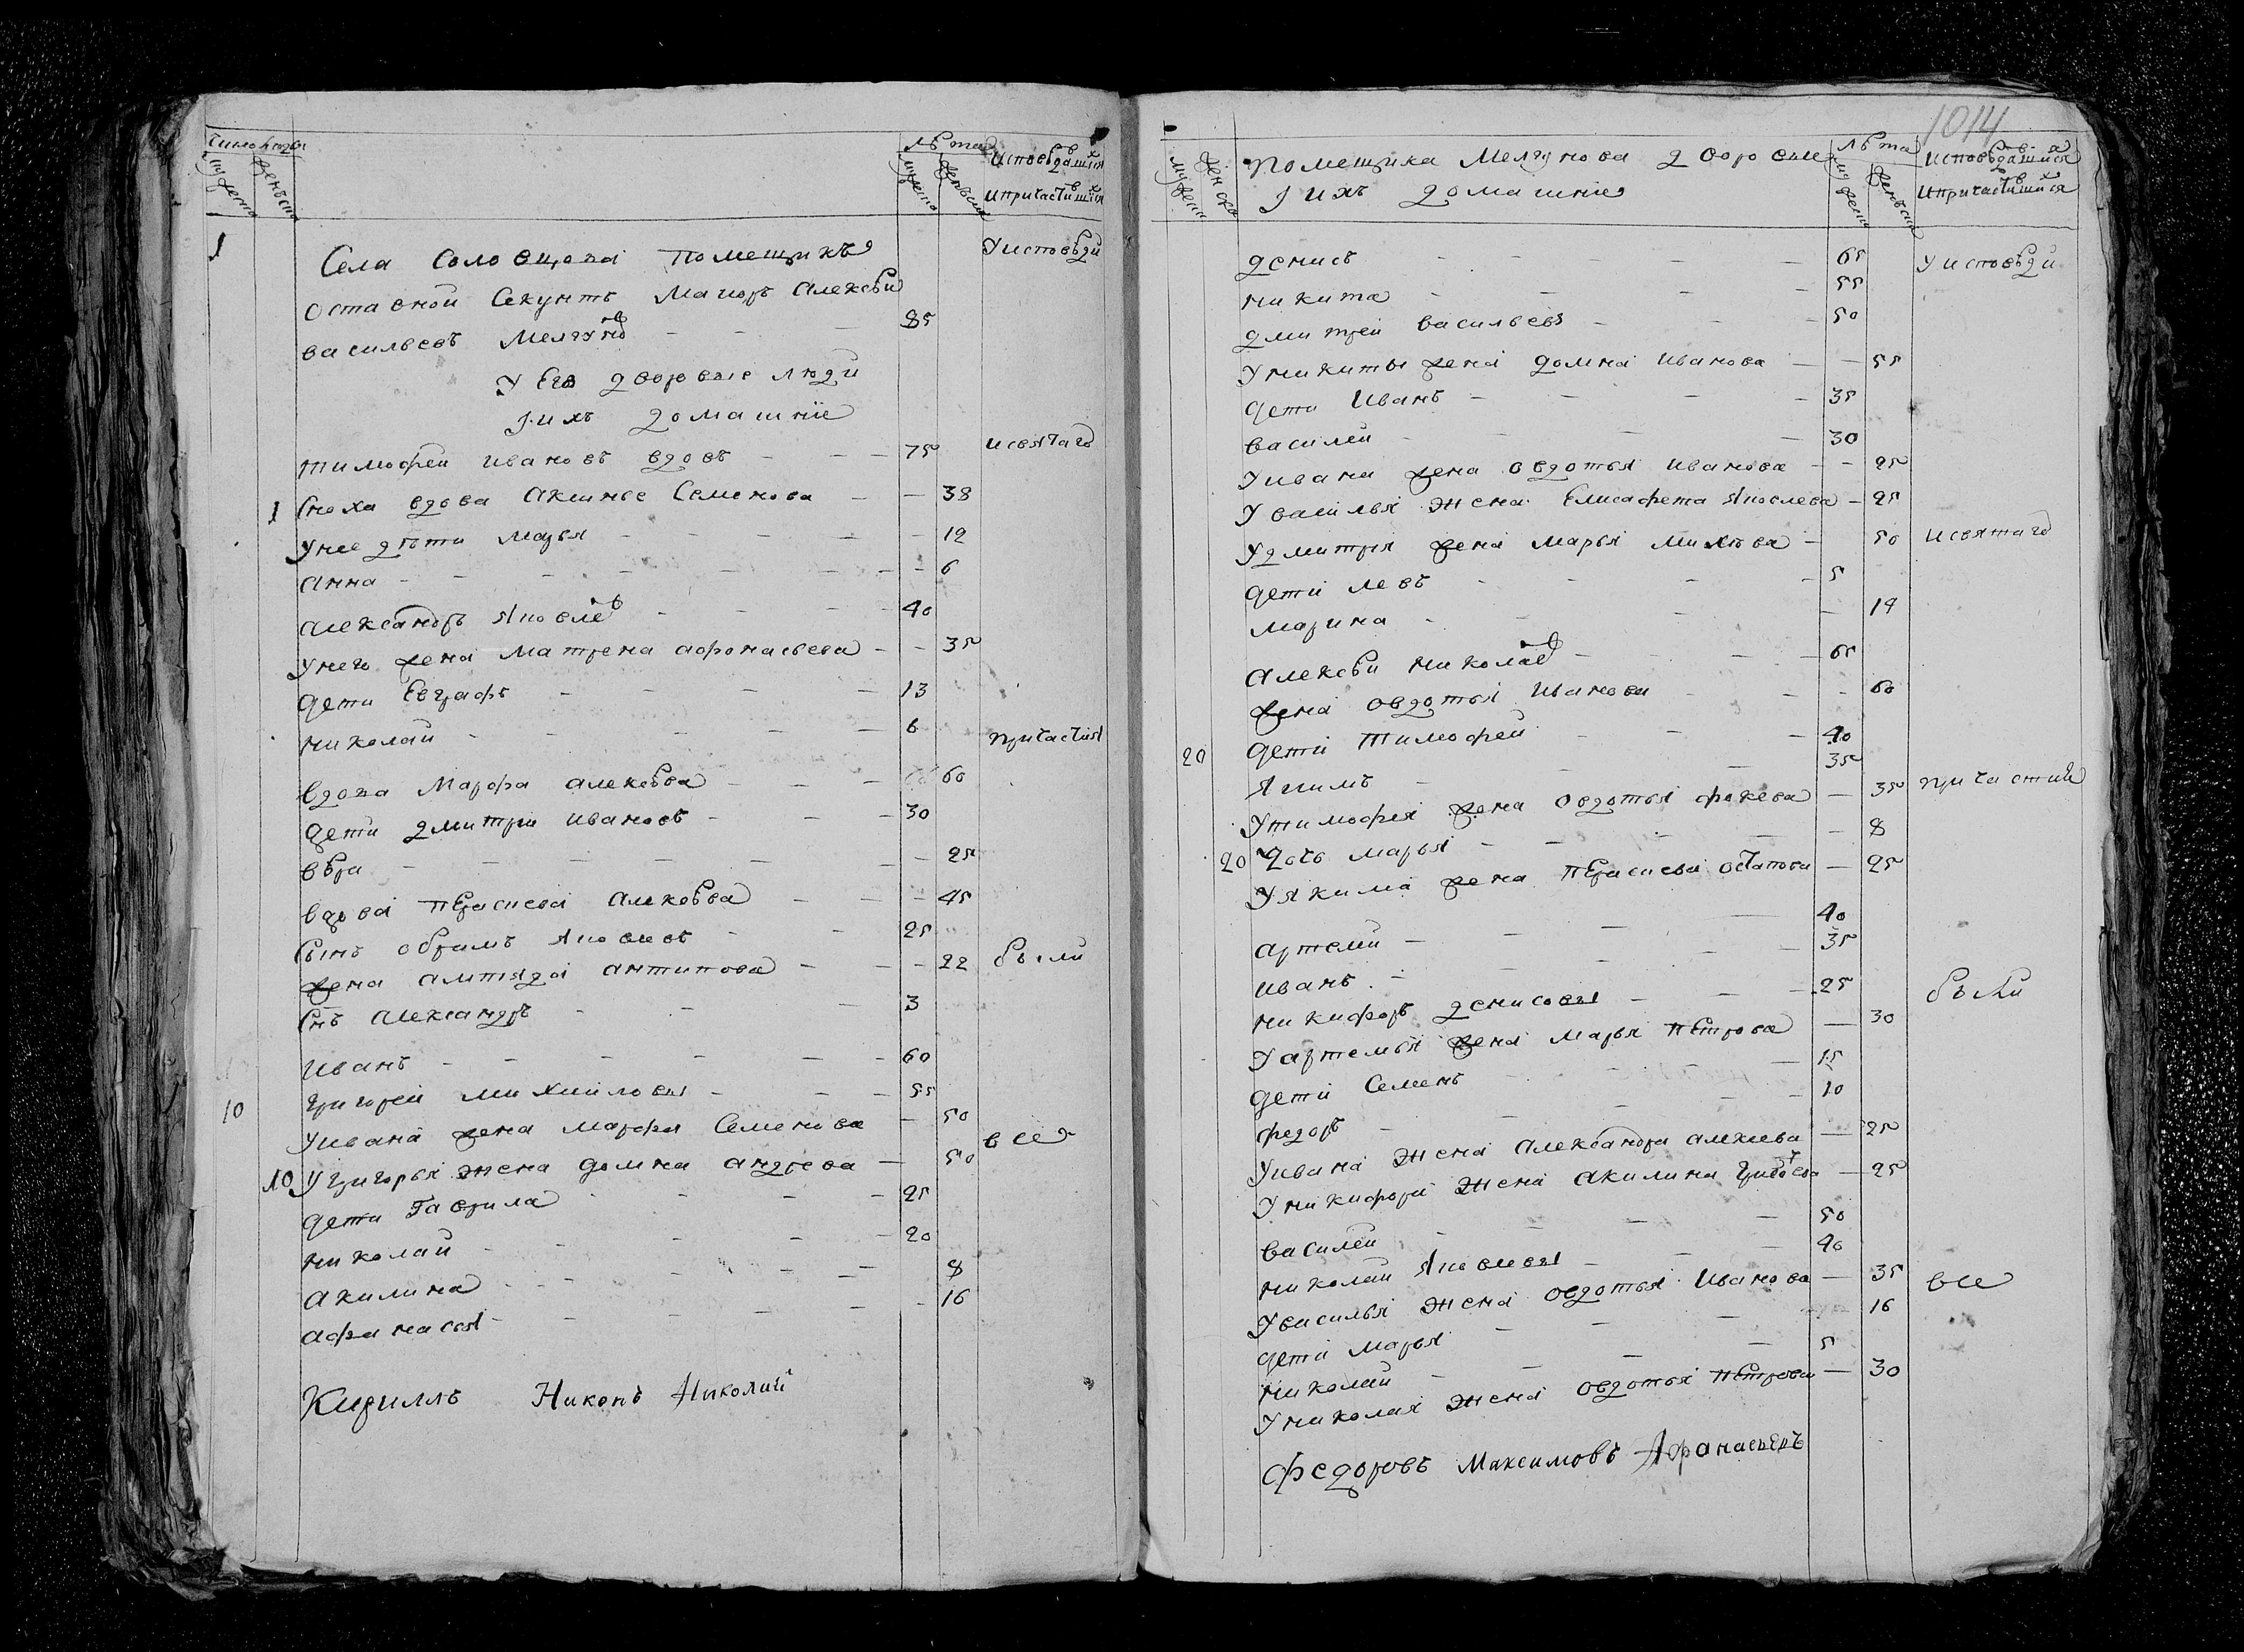 Число людей
мужеска
женска
лѣта
мужеска
женска
исповѣдавшихся
и причастившихся
1
Села Соловцова помещикъ
У исповѣди
оставной Секунтъ Маиоръ Алексѣй
васильевъ Мелгуновъ — — — 85
У Его дворовые люди
и ихъ домашние
тимофей ивановъ вдовъ — — — 75 и святаго
1 Сноха вдова Аксинье Семенова — — 38
У нее дѣти марья — — — — — 12
анна — — — — — — — 6
александръ яковлевъ — — — 40
У него жена матрена афонасьева — — 35
дети Евграфъ — — — — 13
николай — — — — — 6
причастия
вдова Марфа алексѣва — — — 60
дети дмитри ивановъ — — — 30
вѣра — — — — — — — 25
вдова праскева алексѣва — — — 45
Сынъ обрамъ яковлевъ — — 25
жена антипова — — — 22 были
Снъ александръ — — — 3
иванъ — — — — — — 60
10 григорей михайловы — — — 55
У ивана жена марфа Семенова — 50
все
10 У григорья жена домна андрева — 50
дети Гаврила — — — 25
николай — — — — 20
акилина — — — — — 8
афанасья — — — — — 16
Кириллъ Никонъ Николай
1014
мужеска
женска
помещика Мелгунова дворовые
и ихъ домашние
лѣта
мужеска
женска
исповѣдавшися
и причастившися
денисъ — — — — — 65 У исповѣди
никита — — — — 55
дмитрей васильевы — — — 50
У никиты жена домна иванова — — 55
дети Иванъ — — — — 35
василей — — — 30
У ивана жена овдотья иванова — — 25
У василья жена Елисафета яковлева — 25
У дмитрия жена марья — 50 и святаго
дети левъ — — — — 5
марина — — — — — 14
алексѣй николаевъ — — — 65
жена овдотья иванова — — — 60
20 дети тимофей — — — 40
якимъ — — — 35
У тимофея жена овдотья фокева — 35 причастия
20 дочь марья — — — — — 8
У якима жена праскева остапова — 25
артемей — — — — — 40
иванъ — — — — — 35
никифоръ денисовы — — — 25 были
У артемья жена марья петрова — 30
дети Семенъ — — — — 15
федоръ — — — — — 10
У ивана жена александра алексева — 25
У никифора жена акилина — 25
василей — — — — 50
николай яковлевы — — — 40
У василья жена овдотья иванова — 35 все
дети марья — — — 16
николай — — — — 5
У николая жена овдотья петрова — 30
Федоровъ Максимовъ Афанасьевъ